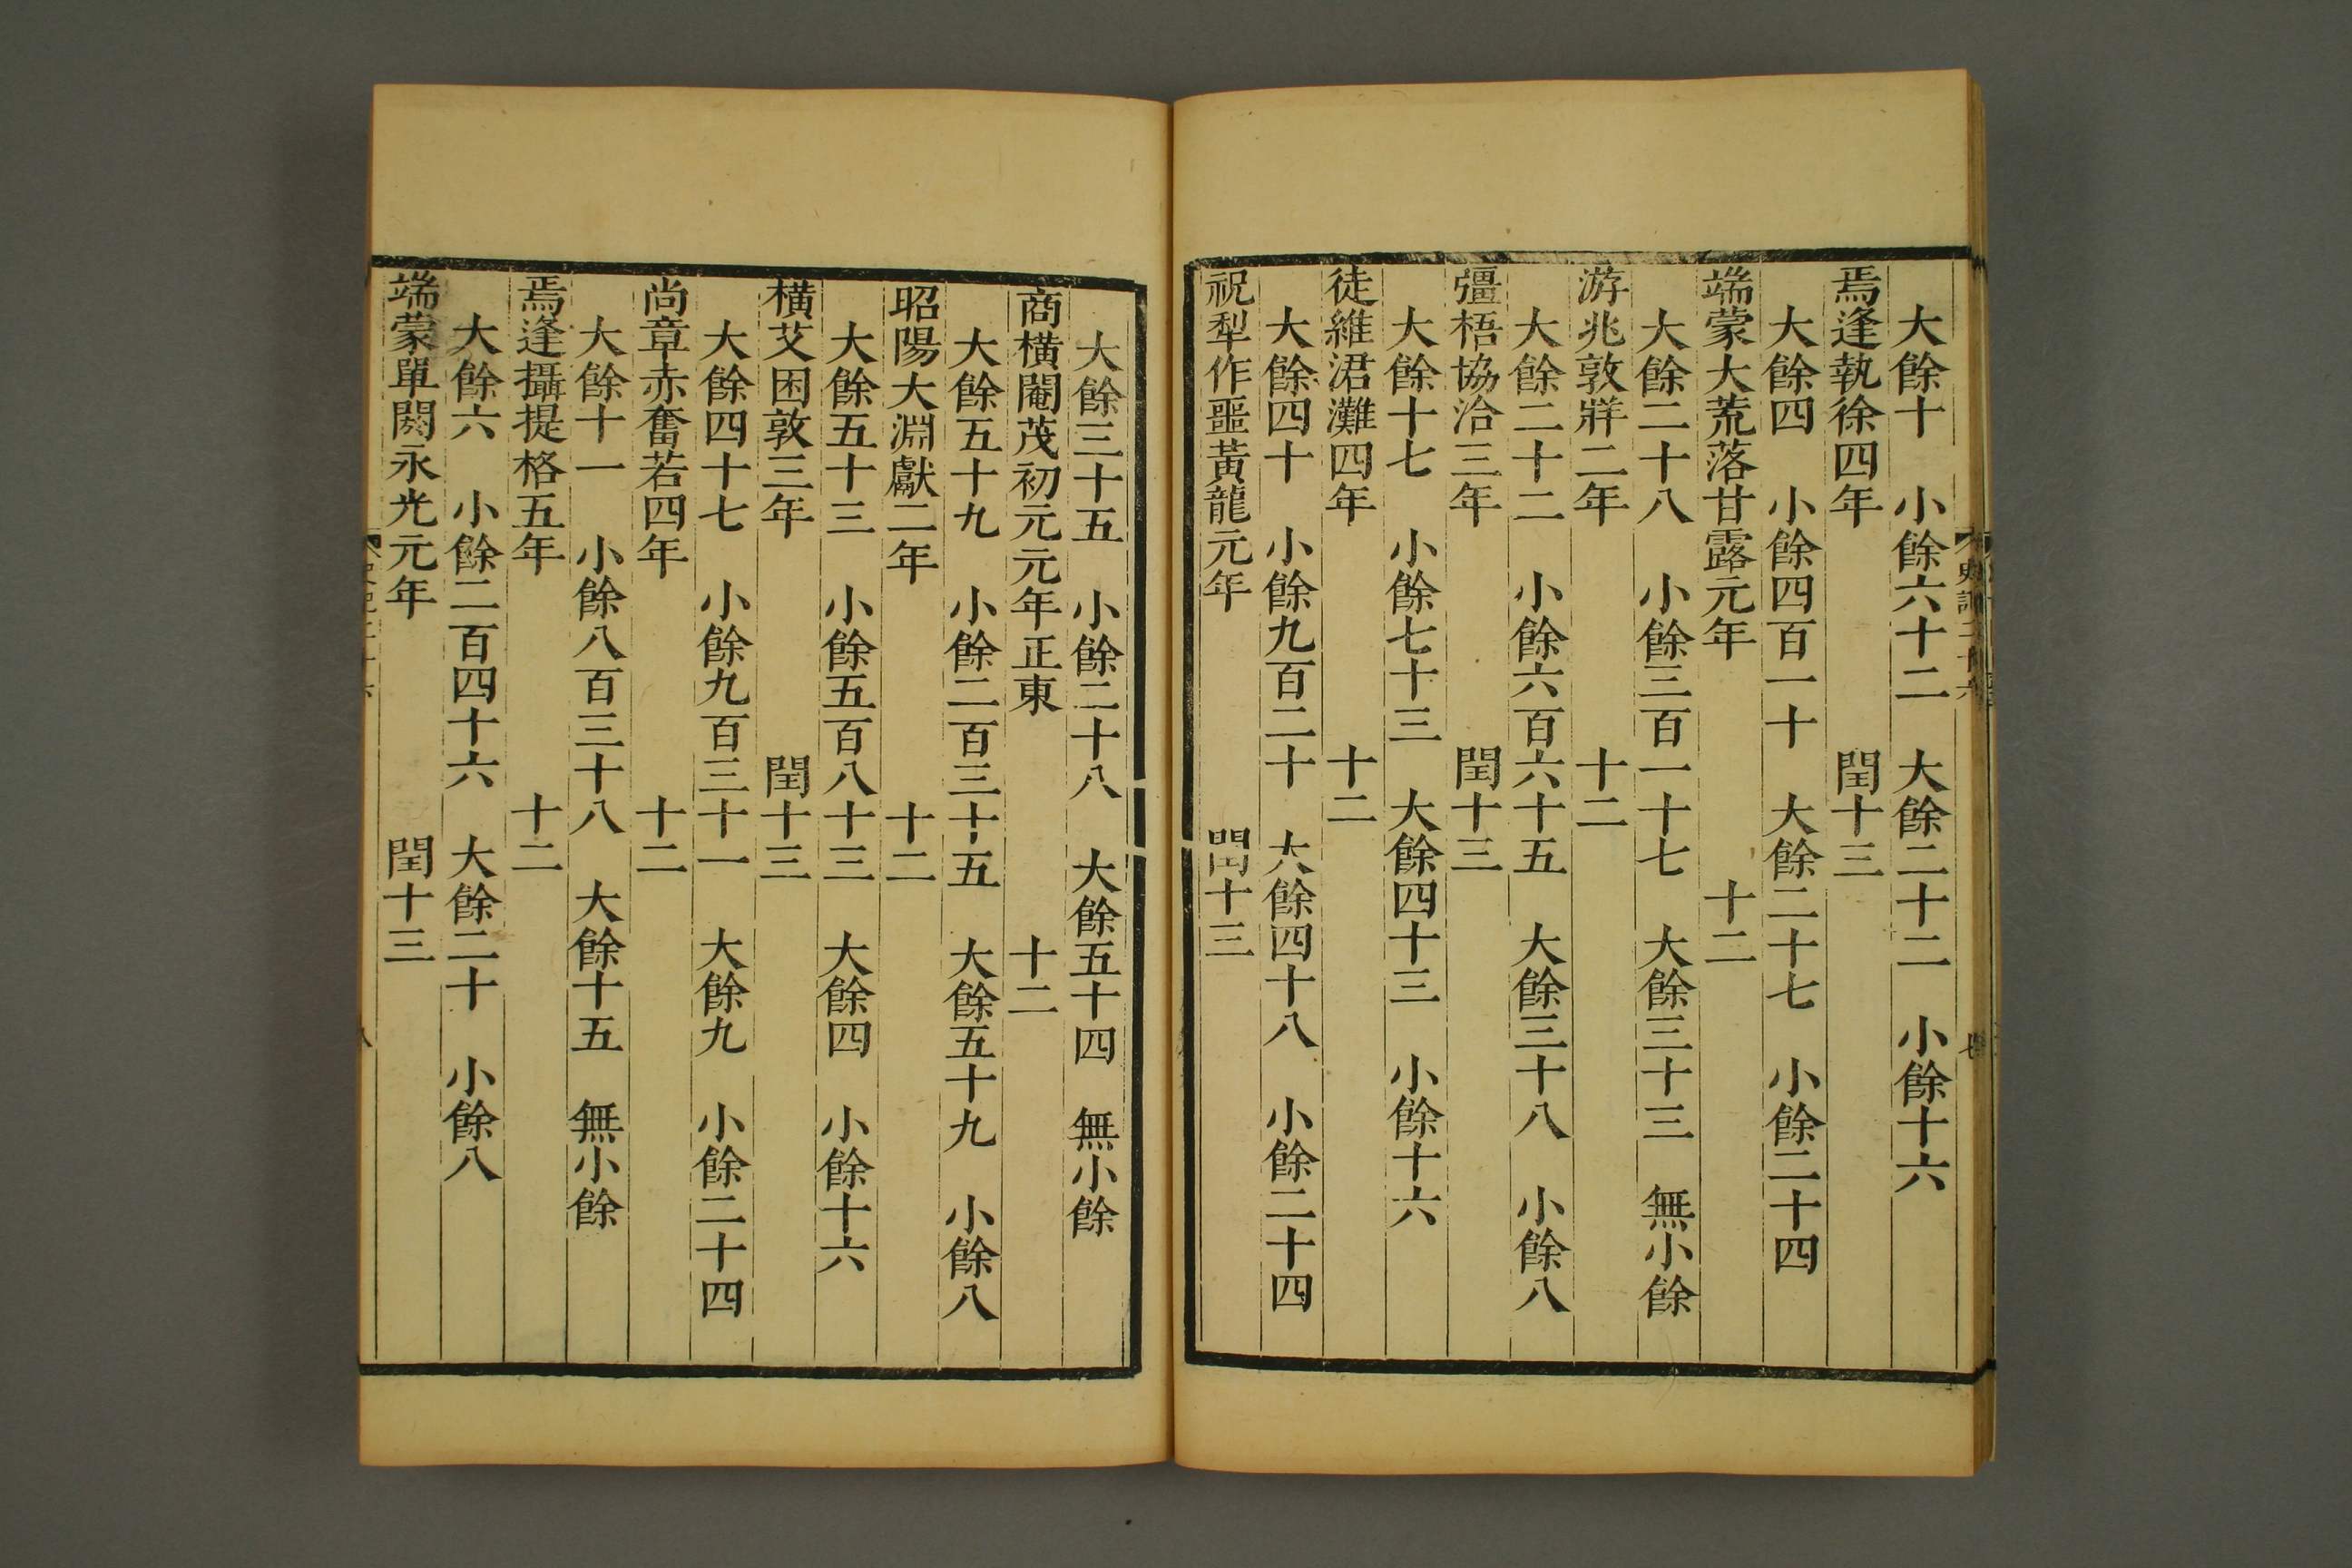 大餘十　小餘六十二　大餘二十二　小餘十六
焉逢執徐四年　閏十三
大餘四　小餘四百一十　大餘二十七　小餘二十四
端蒙大荒落甘露元年　十二
大餘二十八　小餘三百一十七　大餘三十三　無小餘
游兆敦牂二年　十二
大餘二十二　小餘六百六十五　大餘三十八　小餘八
彊梧協洽三年　閏十三
大餘十七　小餘七十三　大餘四十三　小餘十六
徒維涒灘四年　十二
大餘四十　小餘九百二十　大餘四十八　小餘二十四
祝犁作噩黃龍元年　閏十三
大餘三十五　小餘二十八　大餘五十四　無小餘
商橫閹茂初元元年正東　十二
大餘五十九　小餘二百三十五　大餘五十九　小餘八
昭陽大淵獻二年　十二
大餘五十三　小餘五百八十三　大餘四　小餘十六
橫艾困敦三年　閏十三
大餘四十七　小餘九百三十一　大餘九　小餘二十四
尚章赤奮若四年　十二
大餘十一　小餘八百三十八　大餘十五　無小餘
焉逢攝提格五年　十二
大餘六　小餘二百四十六　大餘二十　小餘八
端蒙單閼永光元年　閏十三